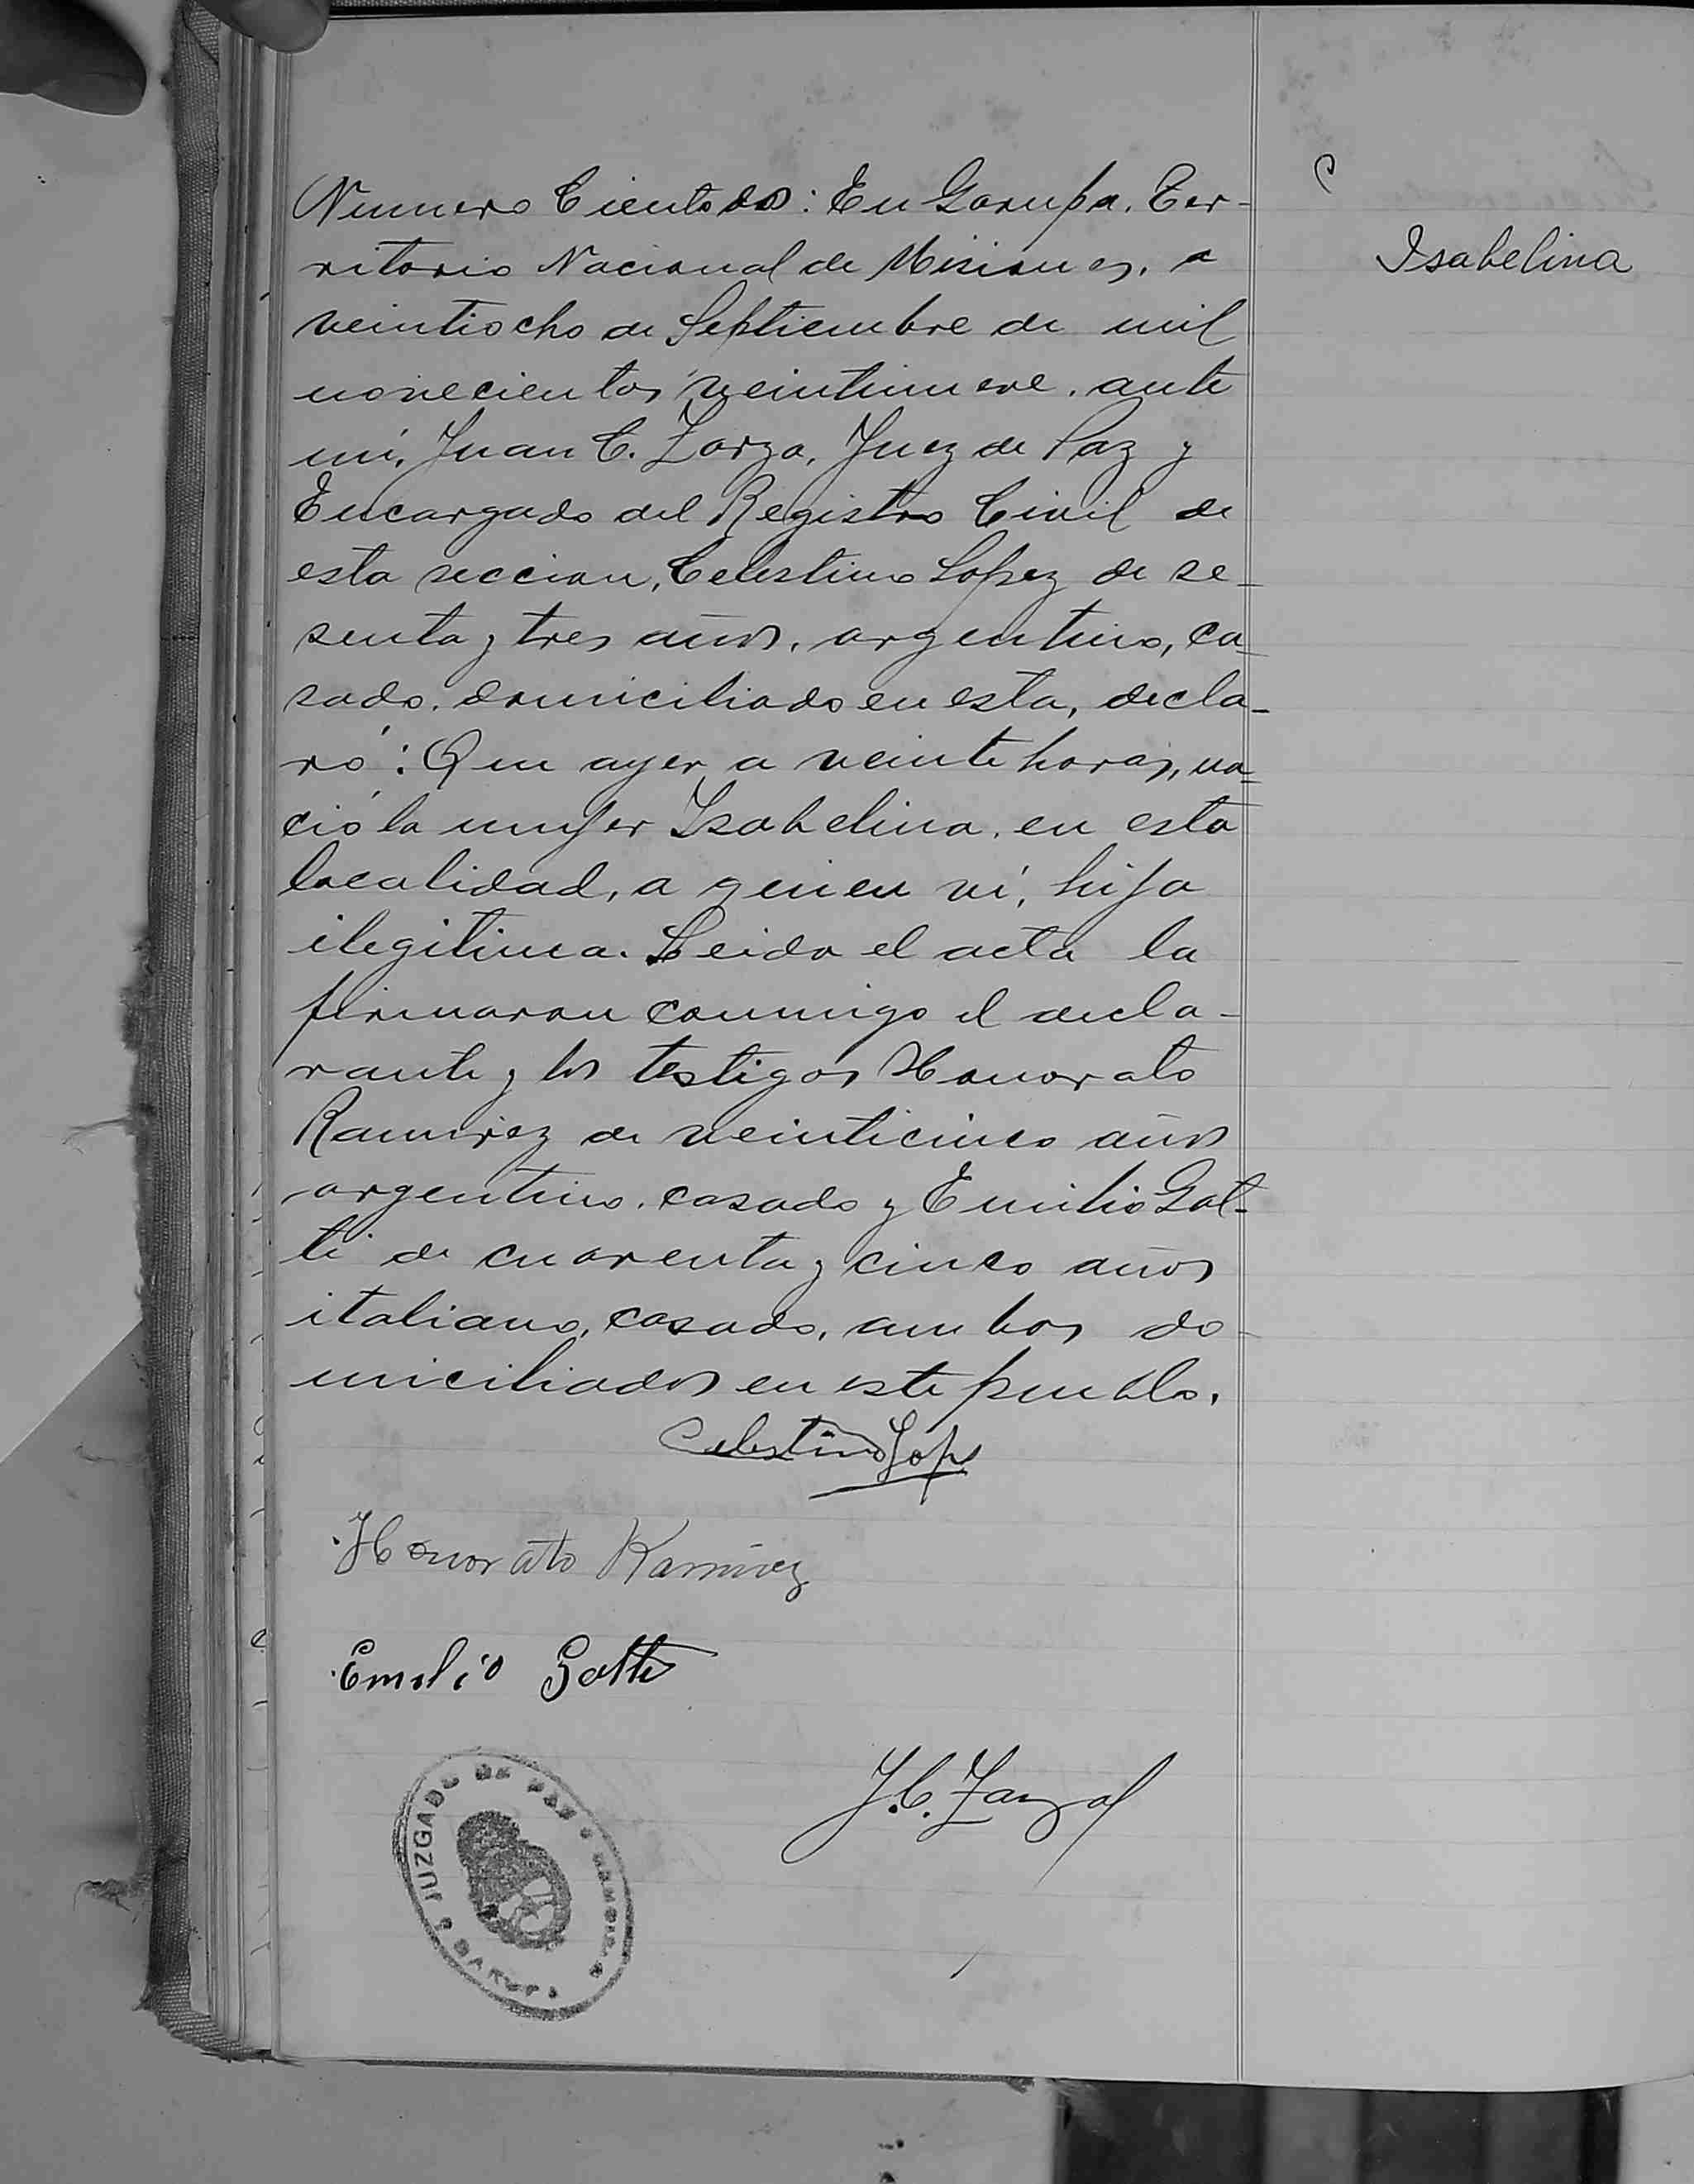 Numero Ciento dos: En Garupa, Ter-
ritorio Nacional de Misiones, a
veintiocho de Septiembre de mil
novecientos veintinueve, ante
mí, Juan C. Zarza, Juez de Paz y
Encargado del Registro Civil de
esta seccion, Celestino Lopez de se-
senta y tres años, argentino, ca-
sado, domiciliado en esta, decla-
ró: Que ayer a veinte horas, na-
ció la mujer Isabelina, en esta
localidad, a quien ví, hija
ilegitima. Leida el acta la
firmaron conmigo el decla-
rante y los testigos Honorato
Ramirez de veinticinco años
argentino, casado y Emilio Gat-
ti de cuarenta y cinco años
italiano, casado, ambos do-
miciliados en este pueblo.
Celestino Lop
Honorato Ramirez
Emilio Gatti
J.C. Zarza
JUZGADO DE PAZ
GARUPA
Isabelina